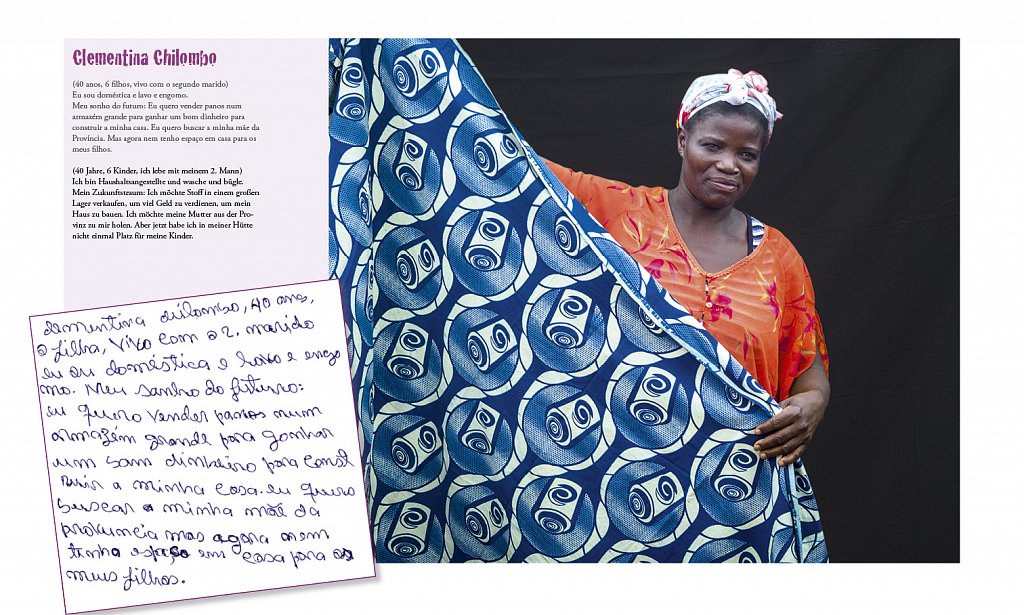 Clementina Chilombo
(40 anos, 6 filhos, vivo com o segundo marido)
Eu sou doméstica e lavo e engomo.
Meu sonho do futuro: Eu quero vender panos num
armazém grande para ganhar um bom dinheiro para
construir a minha casa. Eu quero buscar a minha mãe da
Província. Mas agora nem tenho espaço em casa para os
meus filhos.
(40 Jahre, 6 Kinder, ich lebe mit meinem 2. Mann)
Ich bin Haushaltsangestellte und wasche und bügle.
Mein Zukunftstraum: Ich möchte Stoff in einem großen
Lager verkaufen, um viel Geld zu verdienen, um mein
Haus zu bauen. Ich möchte meine Mutter aus der Pro-
vinz zu mir holen. Aber jetzt habe ich in meiner Hütte
nicht einmal Platz für meine Kinder.
40 anos,
filha, vivo com o 2. marido
eu sou doméstica e lavo e engo
mo. Meu sonho do futuro:
eu quero vender panos num
armazém grande para gonhar
um bam dinheiro para const
ruir a minha casa. eu quero
buscar a minha mãe da
mas agora nem
tinha espaço em casa para os
meus filhos.